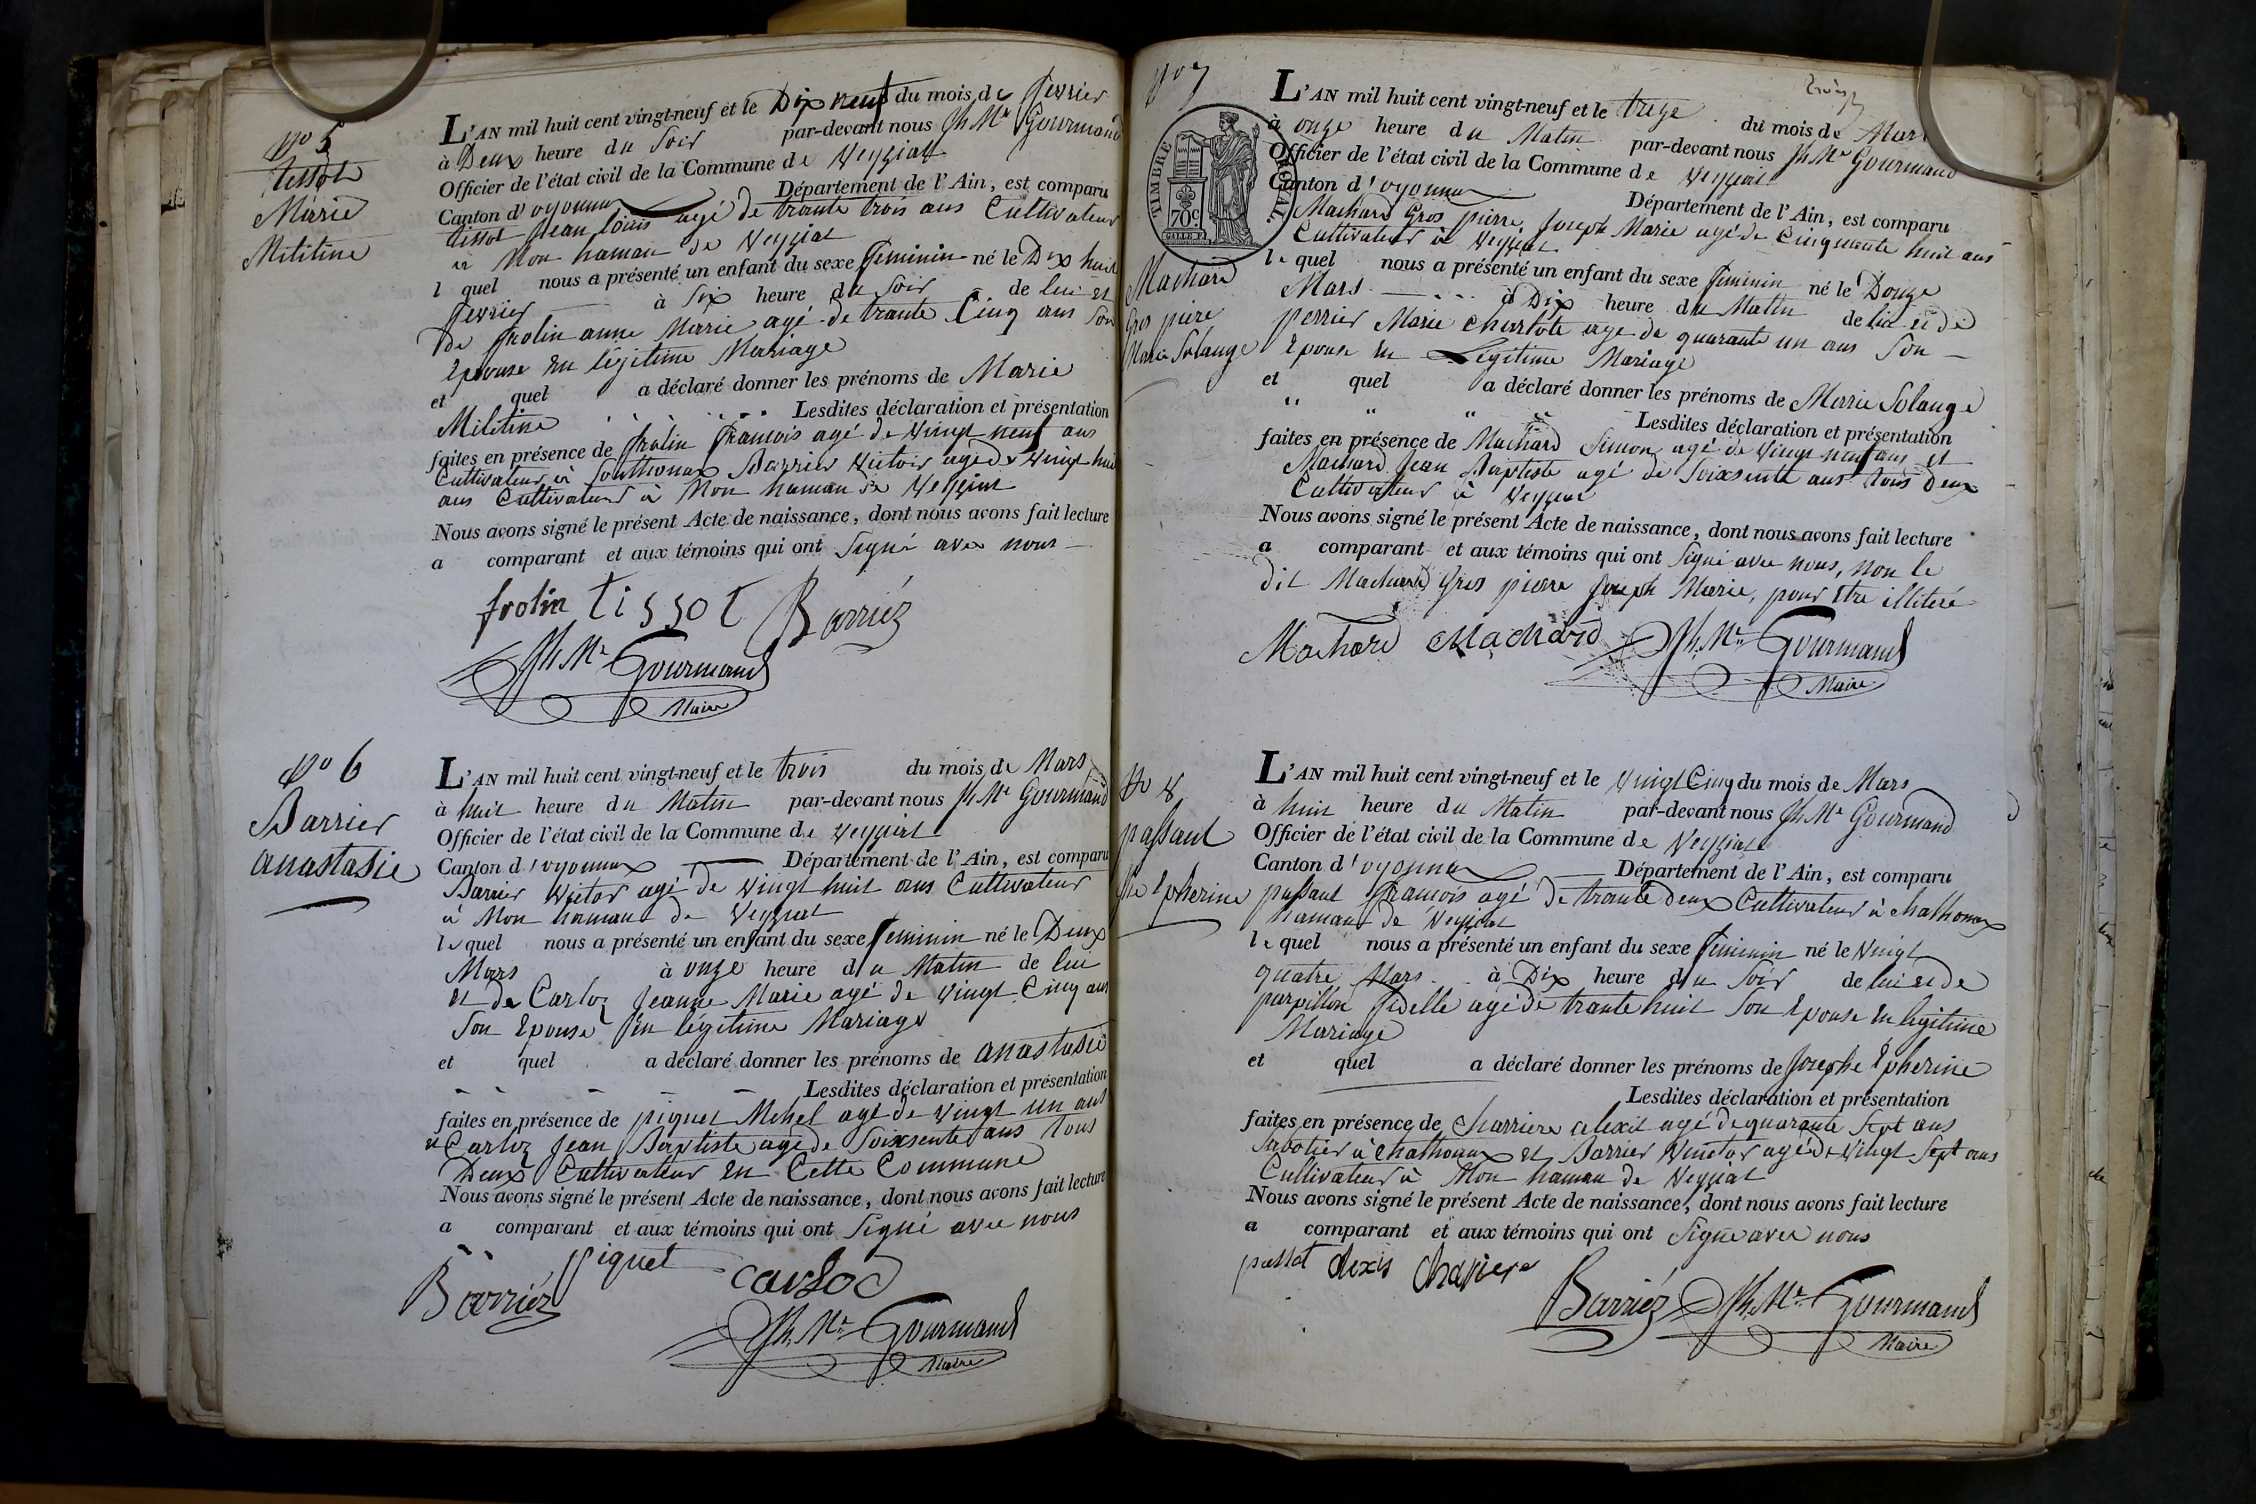 No 5
tissot
Marie
Militine
L'AN mil huit cent vingt-neuf et le Dix neuf du mois de fevrier
à Deux heure du Soir par-devant nous Jh Mie Gourmand
Officier de l'état civil de la Commune de Veyziat
Canton d'oyonnax Département de l'Ain, est comparu
tissot Jean louis agé de trante trois ans Cultivateur
à Mon hamau de Veyziat
l quel nous a présenté un enfant du sexe feminin né le Dix huit
fevrier à Six heure du Soir de lui et
de frolin anne Marie agé de trante Cinq ans Son
Epouse En légitime Mariage
et quel a déclaré donner les prénoms de Marie
Militine Lesdites déclaration et présentation
faites en présence de frolin francois agé de Vingt neuf ans
Cultivateur à Barrier Victor agé de Vingt huit
ans Cultivateur à Mon hamau de Veyziat
Nous avons signé le présent Acte de naissance, dont nous avons fait lecture
a comparant et aux témoins qui ont Signé avec nous
frolin tissot Barriéz
Jh Mie Gourmand
Maire
No 6
Barrier
anastasie
L'AN mil huit cent vingt-neuf et le trois du mois de Mars
à huit heure du Matin par-devant nous Jh Mie Gourmand
Officier de l'état civil de la Commune de Veyziat
Canton d'oyonnax Département de l'Ain, est comparu
Barrier Victor agé de Vingt huit ans Cultivateur
à Mon hamau de Veyziat
le quel nous a présenté un enfant du sexe feminin né le Deux
Mars à onze heure du Matin de lui
et de Carloz Jeanne Marie agé de Vingt Cinq ans
Son Epouse En légitime Mariage
et quel a déclaré donner les prénoms de anastasie
Lesdites déclaration et présentation
faites en présence de piquet Mehel agé de Vingt un ans
et Carloz Jean Baptiste agé de Soixsente ans tous
Deux Cultivateur En Cette Commune
Nous avons signé le présent Acte de naissance, dont nous avons fait lecture
a comparant et aux témoins qui ont Signé avec nous
Barriéz piquet carloz
Jh Mie Gourmand
Maire
No 7
TIMBRE ROYAL.
70c
Machard
Gros piere
Marie Solange
L'AN mil huit cent vingt-neuf et le treze du mois de Mars
à onze heure du Matin par-devant nous Jh Mie Gourmand
Officier de l'état civil de la Commune de Veyziat
Canton d'oyonnax Département de l'Ain, est comparu
Machard Gros pierre, Joseph Marie agé de Cinquante huit ans
Cultivateur à Veyziat
le quel nous a présenté un enfant du sexe feminin né le Douze
Mars à Dix heure du Matin de lui et de
perrier Marie charlote age de quarante un ans Son
Epouse En Légitime Mariage
et quel a déclaré donner les prénoms de Marie Solange
Lesdites déclaration et présentation
faites en présence de Machard Simon agé de Vingt neuf ans et
Machard Jean Baptiste agé de Soixsente ans tous Deux
Cultivateur à Veyziat
Nous avons signé le présent Acte de naissance, dont nous avons fait lecture
a comparant et aux témoins qui ont Signé avec nous, non le
dit Machard Gros pierre Joseph Marie, pour Etre illiteré
Machard Machard Jh Mie Gourmand
Maire
No 8
passaut
Jhe Epherine
L'AN mil huit cent vingt-neuf et le Vingt Cinq du mois de Mars
à huit heure du Matin par-devant nous Jh Mie Gourmand
Officier de l'état civil de la Commune de Veyziat
Canton d'oyonnax Département de l'Ain, est comparu
passaut francois agé de trante deux Cultivateur à chathonax
hamau de Veyziat
le quel nous a présenté un enfant du sexe feminin né le Vingt
quatre Mars à Dix heure du Soir de lui et de
parpillon fidelle agé de trante huit Son Epouse En légitime
Mariage
et quel a déclaré donner les prénoms de Josephe Epherine
Lesdites déclaration et présentation
faites en présence de Charriere alexit agé de quarante Sept ans
Sabotier à chathonax et Barrier agé de Vingt Sept ans
Cultivateur à Mon hamau de Veyziat
Nous avons signé le présent Acte de naissance, dont nous avons fait lecture
a comparant et aux témoins qui ont Signé avec nous
passot alexis Chariere
Barriéz Jh Mie Gourmand
Maire